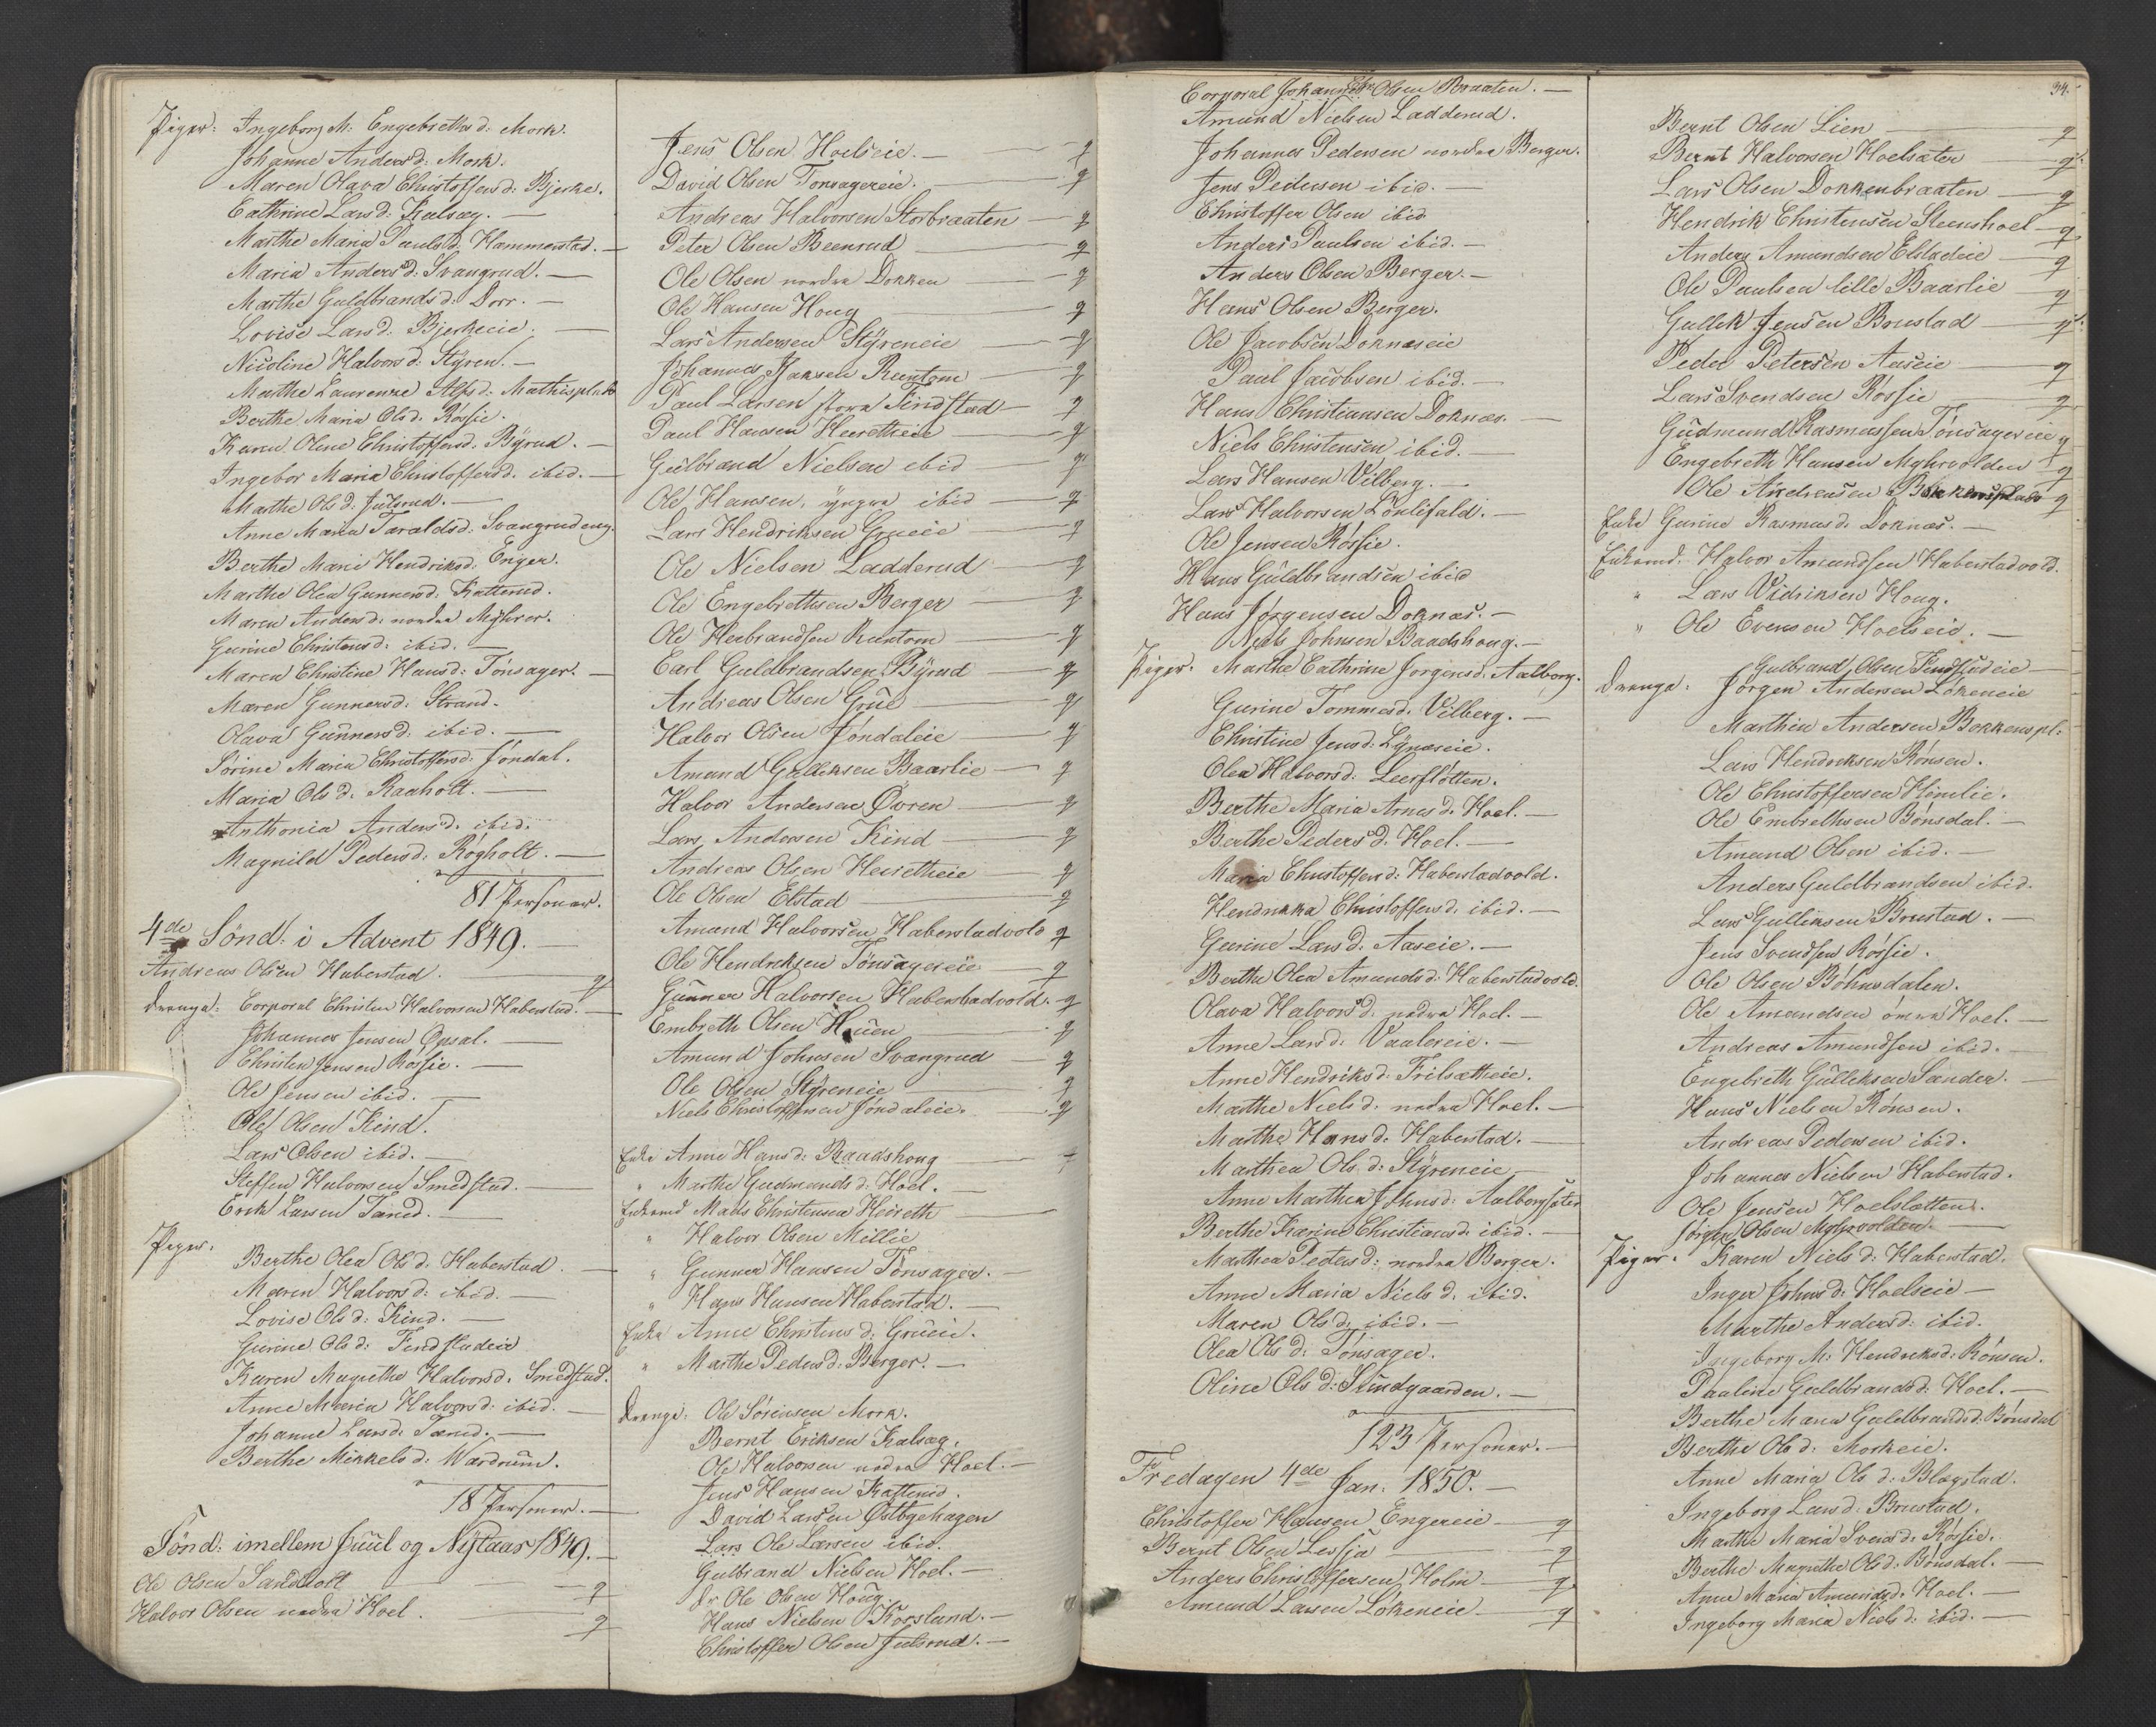 Piger: Ingeborg M: Engebrethsd: Mork.
Johanne Andersd: Mork.
Maren Olava Christoffersd: Bjerke.
Cathrine Larsd: Kalsæg. —
Marthe Maria Paulsd: Hammerstad. —
Maria Andersd: Svangrud. —
Marthe Guldbrandsd: Dorr. —
Lovise Larsd: Bjerkeeie. —
Nicoline Halvorsd: Styren. —
Marthe Laurenze Alfsd: Mathisplads
Berthe Maria Olsd: Røssie.
Karen Olene Christoffersd: Byrud. —
Ingebor Maria Christoffersd: ibid. —
Marthe Olsd: Julsrud. —
Anne Maria Taraldsd: Svangrudeng.
Berthe Marie Hendriksd: Enger.
Marthe Olea Gunnersd: Katterud.
Maren Andersd: nordre Myhrer.
Gurine Christensd: ibid. —
Maren Christine Hansd: Tønsager. —
Maren Gunnersd: Strand.
Olava Gunnersd: ibid. —
Sørine Maria Christoffersd: Jøndal.
Maria Olsd: Raaholt. —
Anthonia Andersd: ibid.
Magnild Pedersd: Røgholt. —
81 Personer.
4de Sønd: i Advent 1849. —
Andreas Olsen Haberstad. — q
Drenge: Corporal Christen Halvorsen Haberstad. —
Johannes Jensen Opsal. —
Christen Jensen Røssie. —
Ole Jensen ibid. —
Ole Olsen Kind.
Lars Olsen ibid. —
Steffen Halvorsen Smedstad. —
Erik Larsen Tærud. —
Piger:
Berthe Olea Olsd: Haberstad. —
Maren Halvorsd: ibid. —
Lovise Olsd: Kind. —
Gurine Olsd: Findstadeie
Karen Magrethe Halvorsd: Smedstad.
Anne Maria Halvorsd: ibid. —
Johanne Larsd: Tærud. —
Berthe Mikkelsd: Wardrum.
18 Personer. —
Sønd: imellem Juul og Nytaar 1849. —
Ole Olsen Sandholt — q
Halvor Olsen nedre Hoel. — q
Jens Olsen Hoelseie. — q
David Olsen Tønsagereie. — q
Andreas Halvorsen Storbraaten — q
Peter Olsen Beenrud — q
Ole Olsen nordre Dokken — q
Ole Hansen Houg — q
Lars Andersen Styreneie — q
Johannes Jansen Runtom — q
Paul Larsen store Findstad — q
Paul Hansen Heeretheie — q
Gulbrand Nielsen ibid — q
Ole Hansen, yngre ibid — q
Lars Hendriksen Grueeie — q
Ole Nielsen Ladderud — q
Ole Engebrethsen Berger — q
Ole Herbrandsen Runtom — q
Carl Guldbrandsen Byrud — q
Andreas Olsen Grue — q
Halvor Olsen Jøndaleie — q
Amund Gulliksen Baarlie — q
Halvor Andersen Øvren — q
Lars Andersen Kind — q
Andreas Olsen Heieretheie — q
Ole Olsen Elstad — q
Amund Halvorsen Haberstadvold q
Ole Hendriksen Tønsagereie — q
Gunner Halvorsen Haberstadvold. — q
Embreth Olsen Huuen — q
Amund Johnsen Svangrud — q
Ole Olsen Styreneie — q
Niels Christoffersen Jøndaleie. — q
Enke Anne Hansd: Baadshoug —
" Marthe Gudmundsd: Hoel. —
Enkemd Mads Christensen Heireth —
" Halvor Olsen Millie
" Gunner Hansen Tønsager. —
" Hans Hansen Haberstad. —
Enke Anne Christensd: Grueeie.
" Marthe Pedersd: Berger. —
Drenge: Ole Sørensen Mork.
Bernt Eriksen Kalsæg.
Ole Halvorsen nedre Hoel. —
Jens Hansen Katterud.
David Larsen Østbyehagen
Lars Ole Larsen ibid.
Gulbrand Nielsen Hoel. —
Dr. Ole Olsen Houg.
Hans Nielsen Korslund. —
Christoffer Olsen Julsrud. —
Corporal Johannes Chr. Olsen Braaten. —
Amund Nielsen Ladderud.
Johannes Pedersen nordre Berger.
Jens Pedersen ibid. —
Christoffer Olsen ibid
Anders Paulsen ibid. —
Anders Olsen Berger. —
Hans Olsen Berger.
Ole Jacobsen Doknæseie
Paul Jacobsen ibid. —
Hans Christiansen Doknæs. —
Niels Christensen ibid. —
Lars Hansen Vilberg. —
Lars Halvorsen Lønlifald. —
Ole Jensen Røssie.
Hans Guldbrandsen ibid
Hans Jørgensen Doknæs. —
Niels Johnsen Baadshoug. —
Piger. Marthe Cathrine Jørgensd: Aalborg.
Gurine Tommesd: Vilberg. —
Christine Jensd: Lynæseie.
Olea Halvorsd: Leerfløtten.
Berthe Maria Arnesd: Hoel. —
Berthe Pedersd: Hoel. —
Maria Christoffersd: Haberstadvold.
Hendrikka Christoffersd: ibid. —
Gurine Larsd: Aaseie. —
Berthe Olea Amundsd: Haberstadvold.
Olava Halvorsd: nedre Hoel. —
Anne Larsd: Vaalereie. —
Anne Hendriksd: Frilsætheie.
Marthe Nielsd: nedre Hoel. —
Marthe Hansd: Haberstad. —
Marthea Olsd: Styreneie —
Anne Marthea Johnsd: Aalborgsæter
Berthe Karine Christiansd: ibid. —
Marthea Pedersd: nordre Berger.
Anne Maria Nielsd: ibid.
Maren Olsd: ibid. —
Olea Olsd: Tønsager.
Oline Olsd: Sundgaarden. —
123 Personer. —
Fredagen 4de Jan: 1850. —
Christoffer Hansen Engereie — q
Bernt Olsen Lessja — q
Anders Christoffersen Holm — q
Amund Larsen Løkeneie — q
34.
Bernt Olsen Lien — q
Bernt Halvorsen Hoelsæter — q
Lars Olsen Dokkenbraaten — q
Hendrik Christensen Steenshoel — q
Anders Amundsen Elstadeie — q
Ole Paulsen lille Baarlie — q
Gullik Jensen Brustad — q
Peder Petersen Aaseie — q
Lars Svendsen Røssie — q
Gudmund Rasmussen Tønsagereie q
Engebreth Hansen Myhrvolden — q
Ole Andreasen Bækkensplads q
Enke Gurine Rasmusd: Doknæs. —
Enkemd. Halvor Amundsen Haberstadvold.
" Lars Vidriksen Houg.
" Ole Evensen Hoelseie. —
Gulbrand Olsen Findstadeie —
Drenge: Jørgen Andersen Løkeneie
Marthin Andersen Bekkenspl:
Lars Hendriksen Rønsen.
Ole Christoffersen Himlie.
Ole Embrethsen Bønsdal. —
Amund Olsen ibid. —
Anders Guldbrandsen ibid.
Lars Gulliksen Brustad. —
Jens Svendsen Røssie.
Ole Olsen Bøhnsdalen.
Ole Amundsen øvre Hoel. —
Andreas Amundsen ibid. —
Engebreth Gulliksen Sander. —
Hans Nielsen Rønsen.
Andreas Pedersen ibid.
Johannes Nielsen Haberstad.
Ole Jensen Hoelsløtten.
Jørgen Olsen Myhrvolden —
Piger. Karen Nielsd: Haberstad.
Inger Johnsd: Hoelseie —
Marthe Andersd: ibid.
Ingeborg M: Hendriksd: Rønsen.
Pauline Guldbrandsd: Hoel. —
Berthe Maria Guldbrandsd: Bønsdal
Berthe Olsd: Morkeie.
Anne Maria Olsd: Blegstad.
Ingeborg Larsd: Brustad.
Marthe Maria Svensd: Røssie.
Berthe Magrethe Olsd: Bønsdal. —
Anne Maria Amundsd: Hoel. —
Ingeborg Maria Nielsd: ibid. —